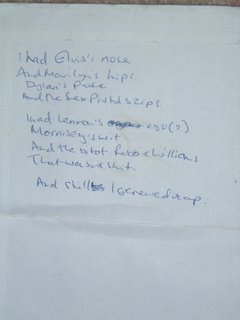 I had Elvis's nose
And Marilyn's hips
Dylan's
And the Sex Pistols zips.
I had Lennon's ego(?)
Morrisey's wit
And the of Robbie Williams
That wasn't shit.
And still I screwed it up.